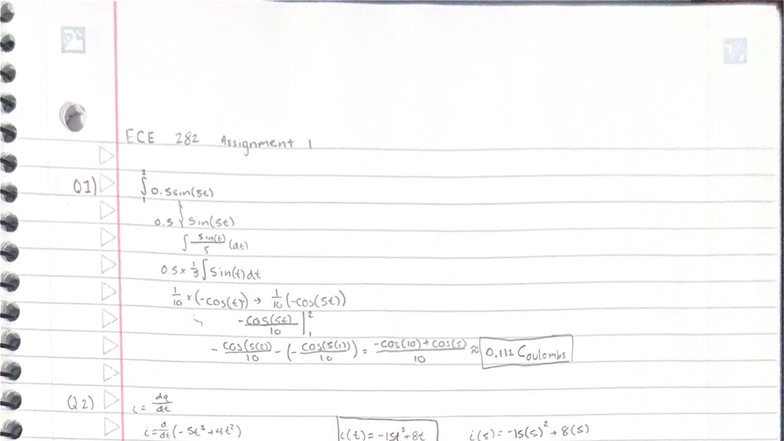 ECE 282 Assignment 1
Q1) ∫₁² 0.5sin(5t)
0.5 ∫ sin(5t)
∫ sin(t)/5 (dt)
0.5 × 1/5 ∫ sin(t)dt
1/10 × (-cos(t)) → 1/10 (-cos(5t))
-cos(5t)/10 |₁²
- cos(5(2))/10 - (- cos(5(1))/10) = -cos(10)+cos(5)/10 ≈ 0.112 Coulombs
Q2) i = dq/dt
i = d/dt (-5t³+4t²) i(t) = -15t²+8t i(5) = -15(5)²+8(5)